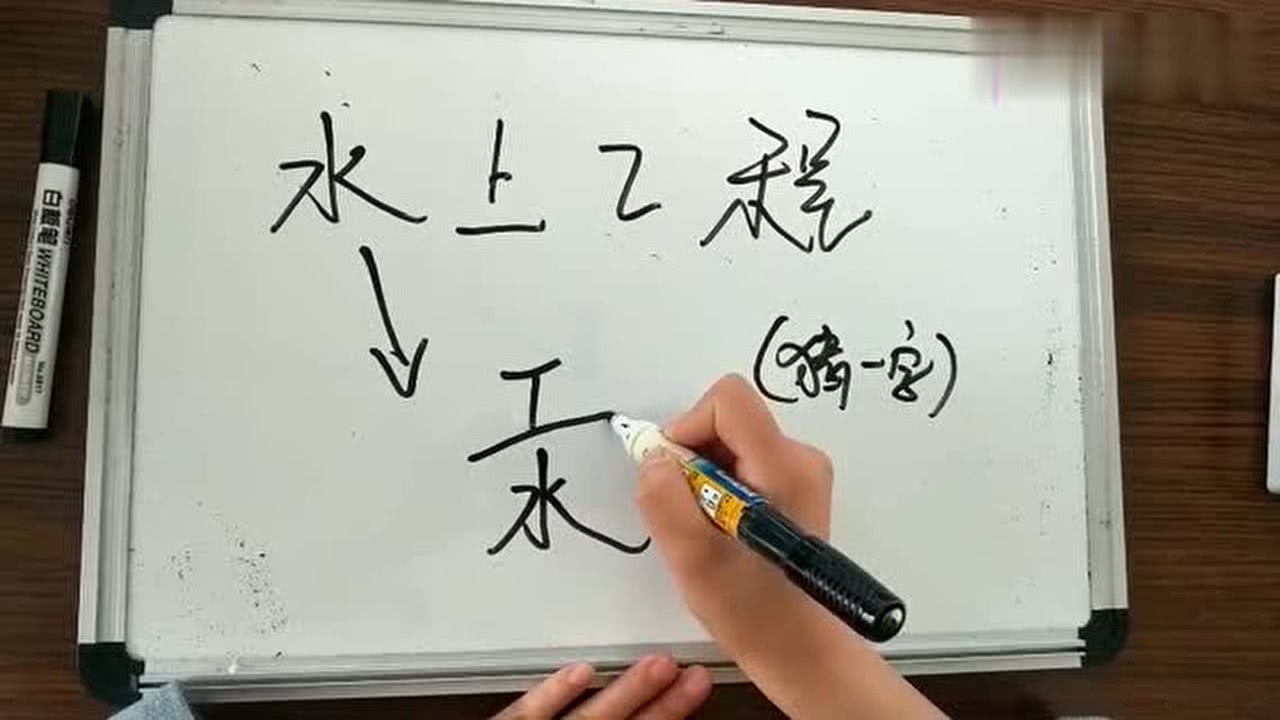 水上工程
(猜一字)
工
水
白板笔 WHITEBOARD